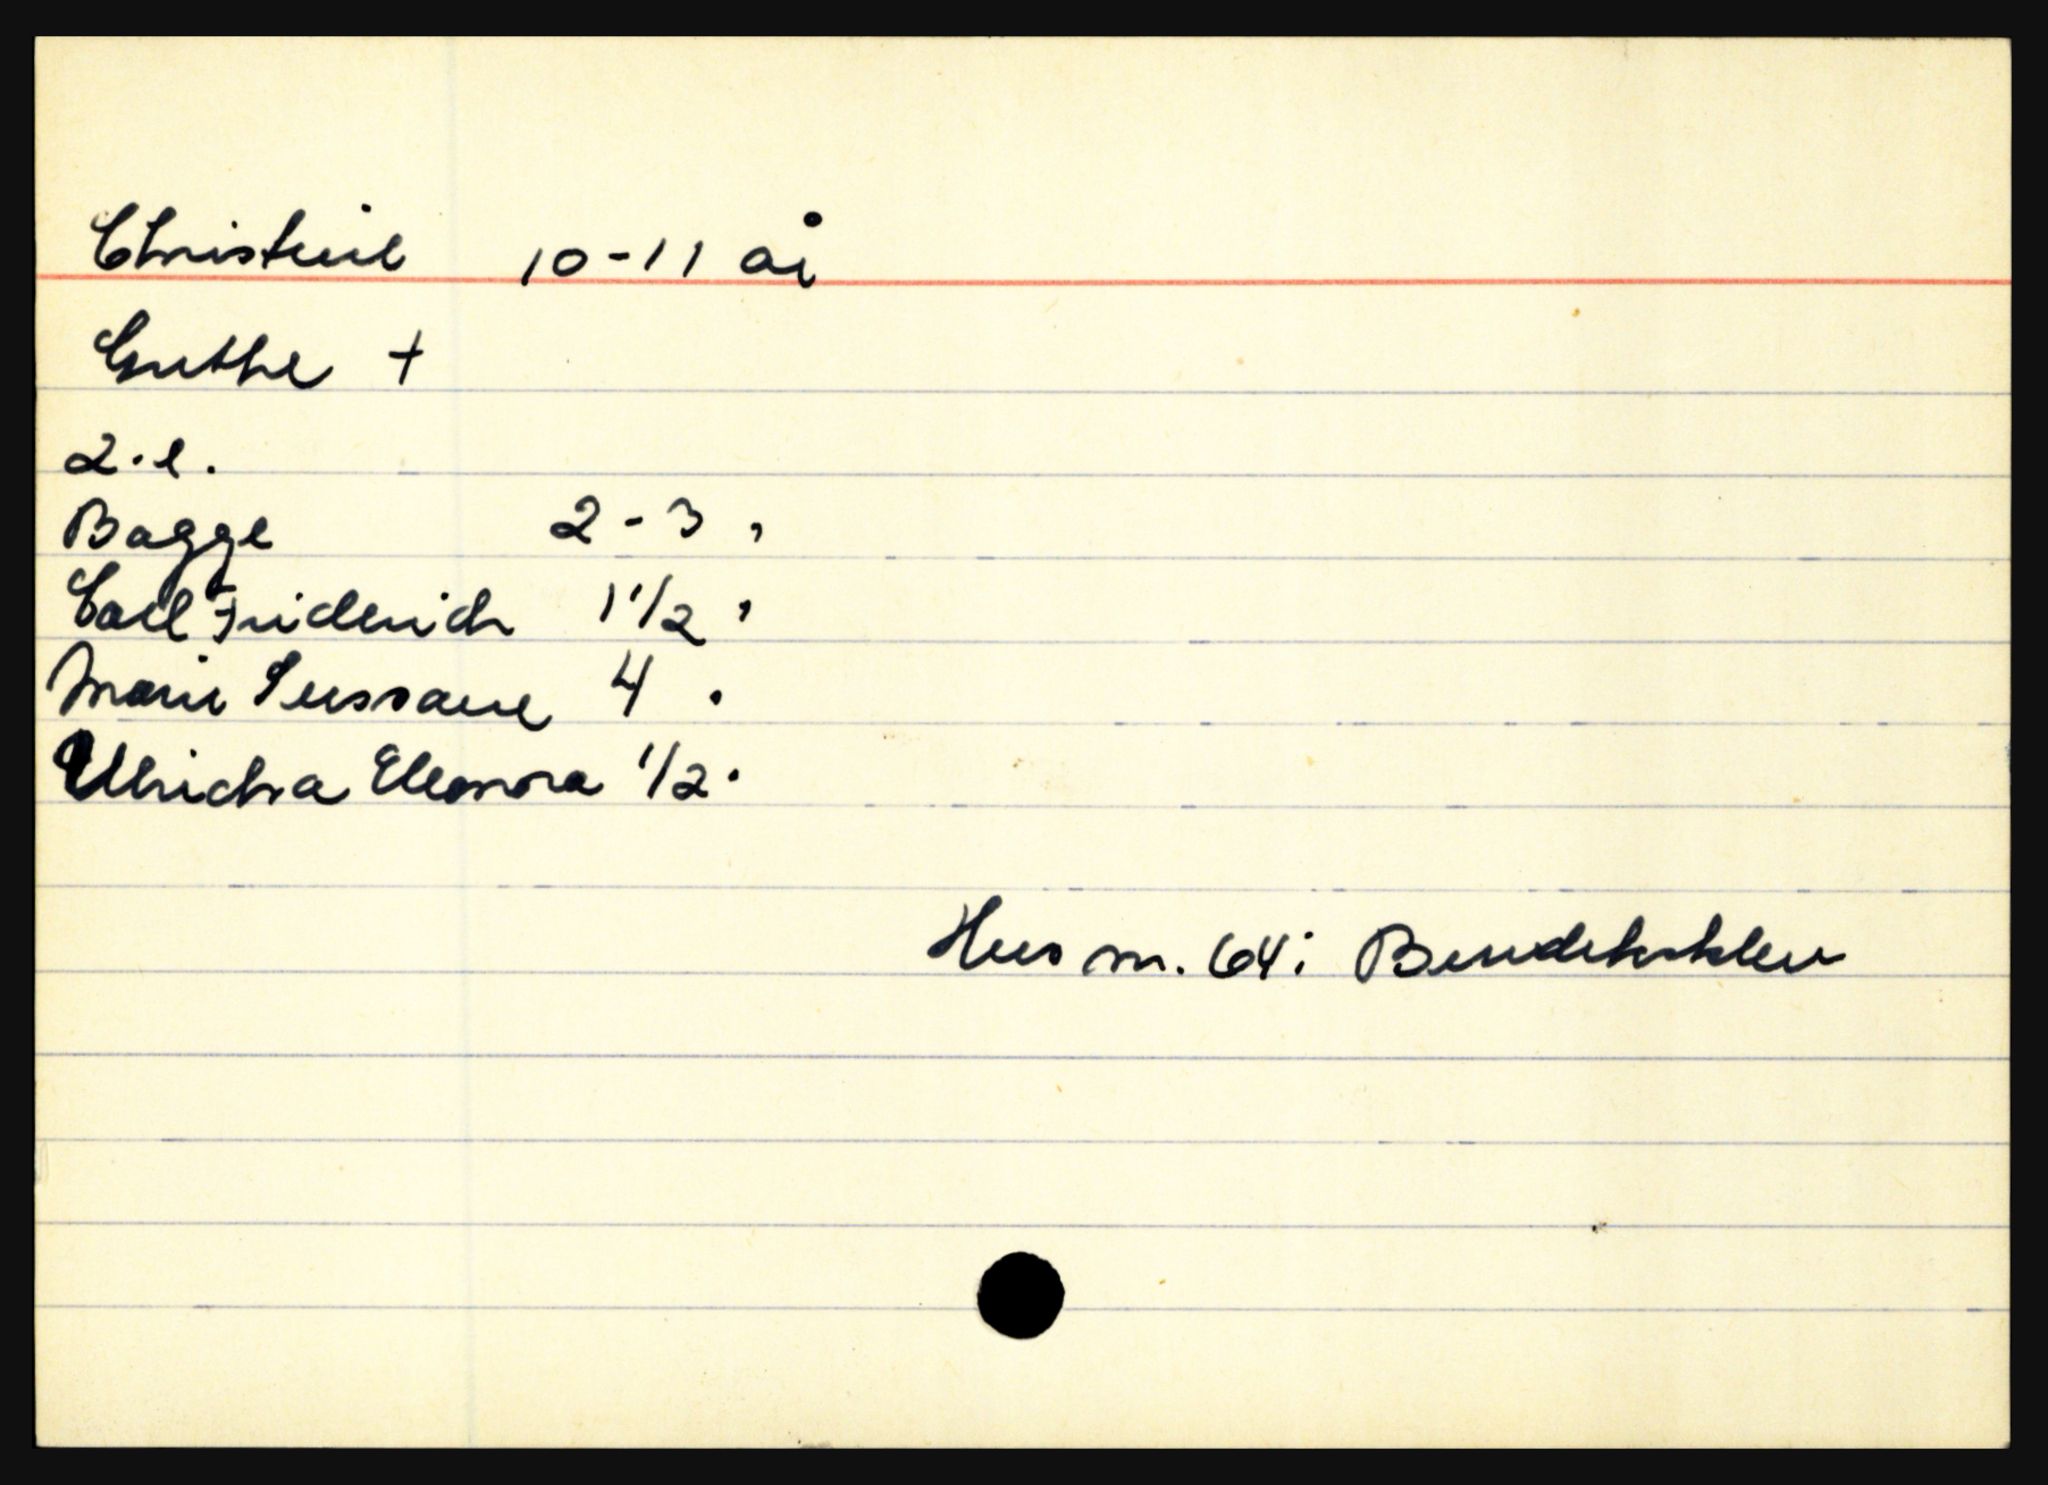 Christine 10-11 år
Grethe +
2.e.
Bagge 2-3 "
Carl Friderich 1 1/2 "
Marie Sussane 4 "
Ulricha Eleonora 1/2 "
Hus nr. 64 i Bendeksklev